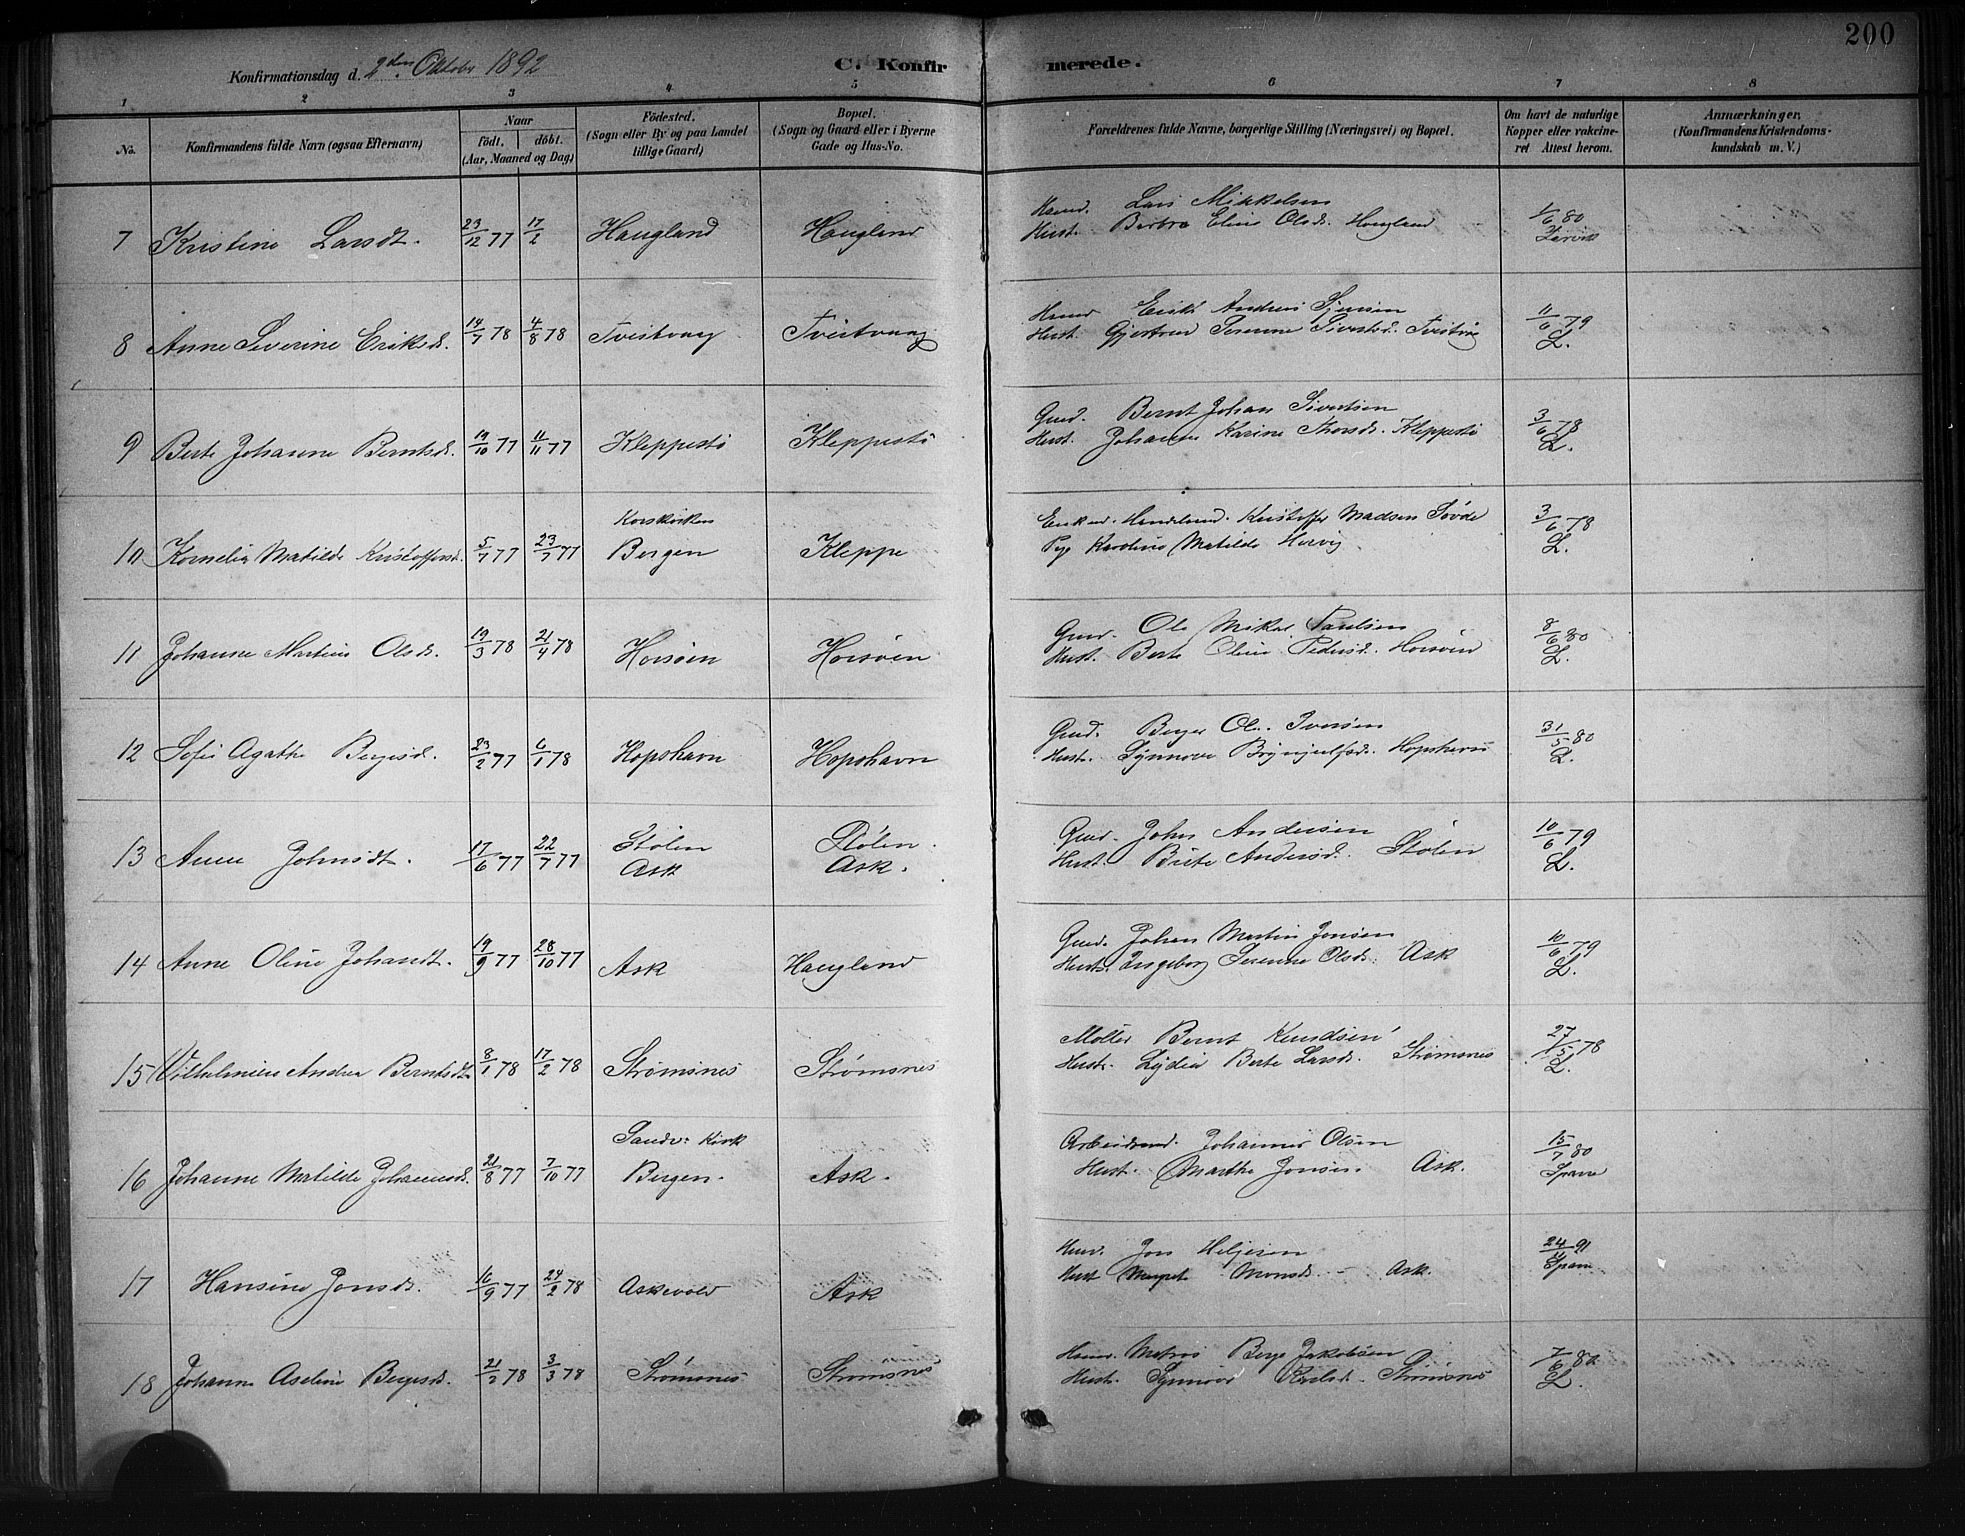 200
Konfirmationsdag d. 2den Oktober 1892
C. Konfirmerede.
1 2 3 4 5 6 7 8
No.
Konfirmandens fulde Navn (ogsaa Efternavn)
Naar
født. døbt.
(Aar, Maaned og Dag)
Fødested.
(Sogn eller By og paa Landet
tillige Gaard)
Bopæl.
(Sogn og Gaard eller i Byerne
Gade og Hus-No.
Forældrenes fulde Navne, borgerlige Stilling (Næringsvei) og Bopæl.
Om havt de naturlige
Kopper eller vakcine-
ret Attest herom.
Anmærkninger,
(Konfirmandens Kristendoms-
kundskab m. V.)
7 Kristine Larsdt. 23/12 77 17/2 Haugland Haugland
Lars Mikkelsen
Hust. Berbra Eline Olsd. Haugland
1/6 80
8 Anne Severine Eriksd. 19/7 78 4/8 78 Tveitvaag Tveitvaag
Erik Andreas
Hust. Gjertrud Serenne Sivertsd. Tveitvåg
11/6 79
L.
9 Berte Johanne Berntsd. 19/10 77 11/11 77 Kleppestø Kleppestø
Gmd. Bernt Johan Sivertsen
Hust. Johanne Karine Thorsd. Kleppestø
3/6 78
L.
10 Kornelia Matilde Kristoffersd. 5/7 77 23/7 77 Korskirken
Bergen Kleppe
Enkem. Handelsmd. Kristoffer Madsen Søvde
Pig. Karoline Matilde Hervig
3/6 78
L.
11 Johanne Martine Olsd. 19/3 78 21/4 78 Horsøen Horsøen
Gmd. Ole Mikal Paulsen
Hust. Berte Oline Pedersd. Horsøen
8/6 80
L.
12 Sofie Agathe Bergesd. 23/2 77 6/1 78 Hopshavn Hopshavn
Gmd. Berge Ol. Iversen
Hust. Synnove Brynjulfsd. Hopshavn
31/5 80
L.
13 Anne Johnsdt. 17/6 77 22/7 77 Stølen
Ask Stølen.
Ask.
Gmd. John Andersen
Hust. Brite Andersd. Stølen
10/6 79
L.
14 Anne Oline Johandt. 19/9 77 28/10 77 Ask Haugland
Gmd. Johan Martin Jonsen
Hust. Ingeborg Serenne Olsd. Ask
10/6 79
L.
15 Vilhelmine Andrea Berntsdt. 8/1 78 17/2 78 Strømsnes Strømsnes
Møller Bernt Knudsen
Hust. Lydia Berte Larsd. Strømsnes
27/5 78
L.
16 Johanne Matilde Johannesd. 21/8 77 7/10 77 Sandv. Kirk
Bergen. Ask.
Arbeidsmd. Johannes Olsen
Hust. Marthe Jonsen Ask.
15/7 80
17 Hansine Jonsd. 16/9 77 24/2 78 Askevold Ask
Jon Heljesen
Hust Monsd. - Ask.
18 Johanne Aseline Bergesd. 21/2 78 3/3 78 Strømsnes Strømsnes
Matros Berge Jakobsen
Hust. Synnove Strømsnes
7/6 80
L.